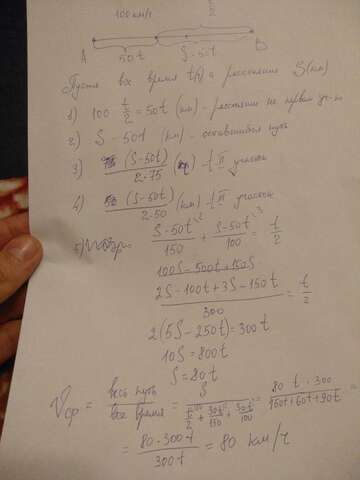 100 км/ч t/2
A B
50t S-50t
Пусть все время t(ч) а расстояние S(км)
1) 100 · t/2 = 50t (км) - расстояние на первом
2) S - 50t (км) - оставшийся путь
3) (S-50t)/(2·75) - t II участок
4) (S-50t)/(2·50) (км) - t III участок
5) (S-50t)/150 + (S-50t)/100 = t/2
100S - 500t + 150S
(2S - 100t + 3S - 150t)/300 = t/2
2(5S - 250t) = 300t
10S = 800t
S = 80t
Vср = весь путь/все время = S/(t/2 + 30t/150 + 30t/100) = 80t·300/(150t+60t+90t) =
= 80·300t/300t = 80 км/ч